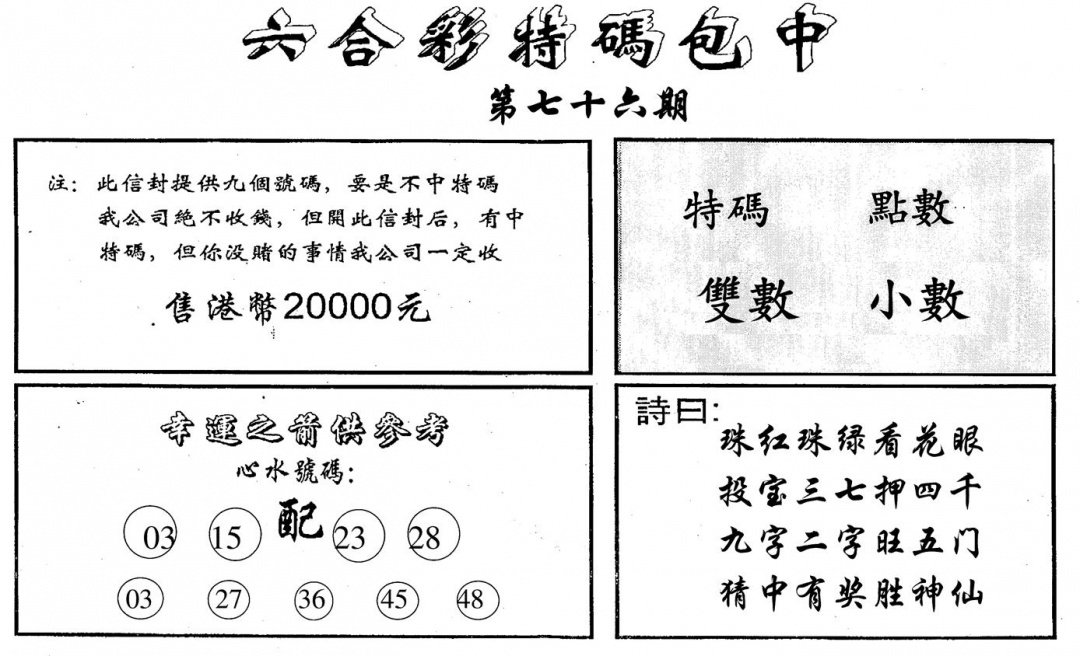 六合彩特碼包中
第七十六期
注：此信封提供九個號碼，要是不中特碼
我公司絶不收錢，但開此信封后，有中
特碼，但你没賭的事情我公司一定收
售港幣20000元
特碼 點數
雙數 小數
幸運之箭供參考
心水號碼：
03 15 配 23 28
03 27 36 45 48
詩曰：
珠红珠绿看花眼
投宝三七押四千
九字二字旺五门
猜中有奖胜神仙